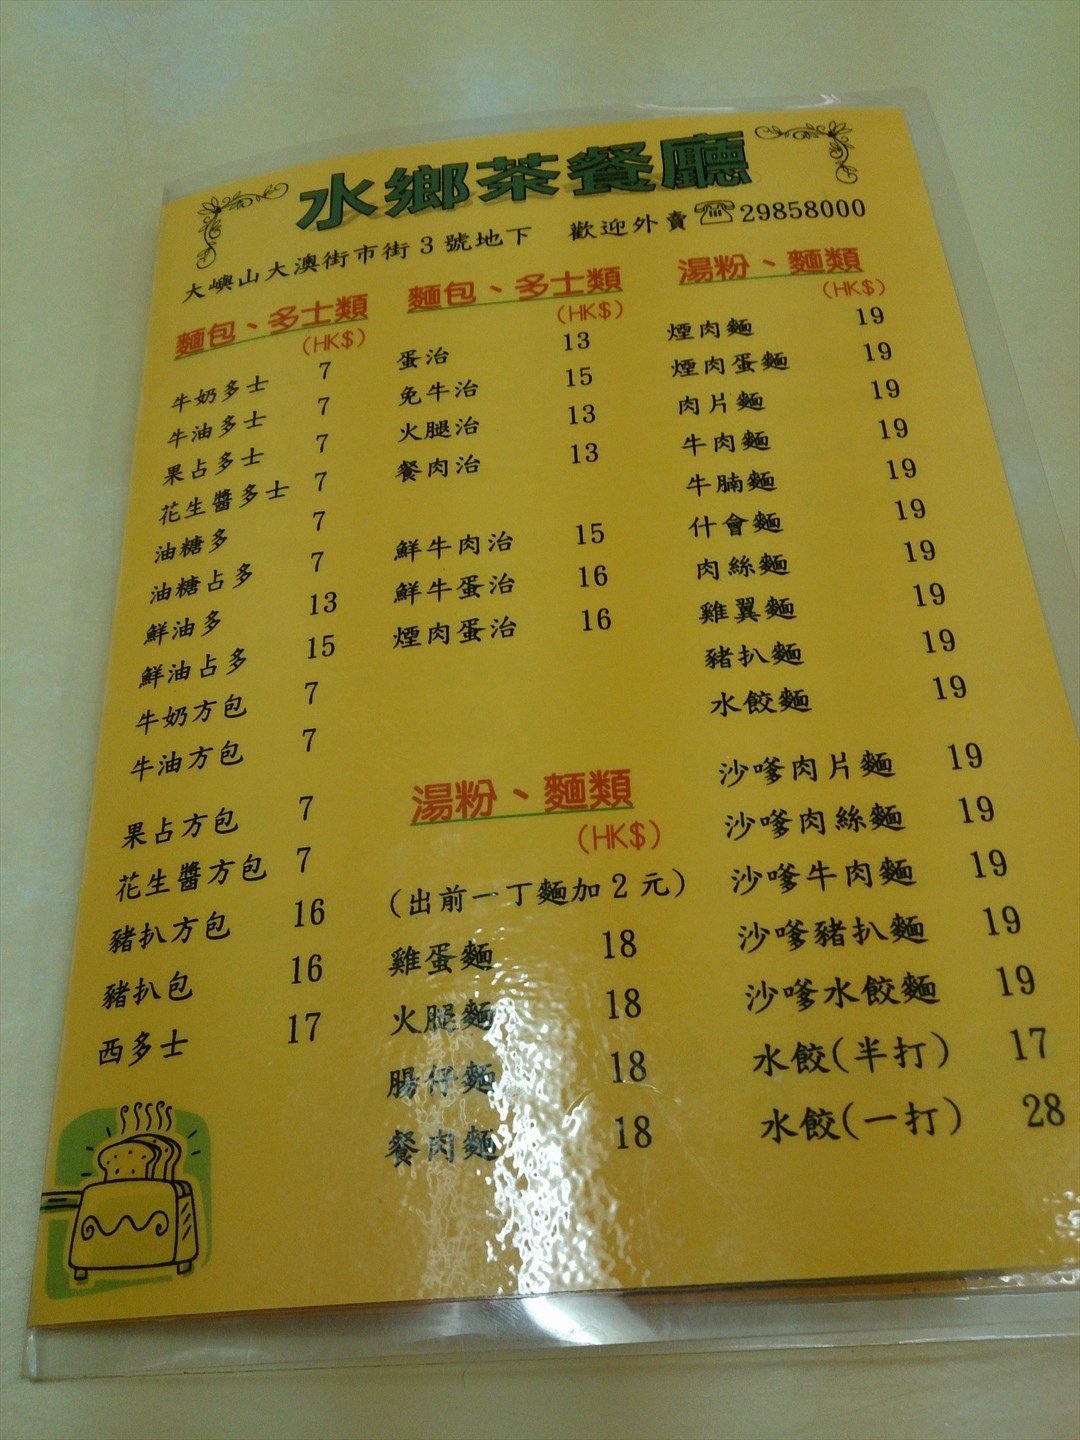 水鄉茶餐廳
大嶼山大澳街市街3號地下 歡迎外賣☏29858000
麵包、多士類
(HK$)
牛奶多士 7
牛油多士 7
果占多士 7
花生醬多士 7
油糖多 7
油糖占多 7
鮮油多 13
鮮油占多 15
牛奶方包 7
牛油方包 7
果占方包 7
花生醬方包 7
豬扒方包 16
豬扒包 16
西多士 17
麵包、多士類
(HK$)
蛋治 13
免牛治 15
火腿治 13
餐肉治 13
鮮牛肉治 15
鮮牛蛋治 16
煙肉蛋治 16
湯粉、麵類
(HK$)
(出前一丁麵加2元)
雞蛋麵 18
火腿麵 18
腸仔麵 18
餐肉麵 18
湯粉、麵類
(HK$)
煙肉麵 19
煙肉蛋麵 19
肉片麵 19
牛肉麵 19
牛腩麵 19
什會麵 19
肉絲麵 19
雞翼麵 19
豬扒麵 19
水餃麵 19
沙嗲肉片麵 19
沙嗲肉絲麵 19
沙嗲牛肉麵 19
沙嗲豬扒麵 19
沙嗲水餃麵 19
水餃(半打) 17
水餃(一打) 28